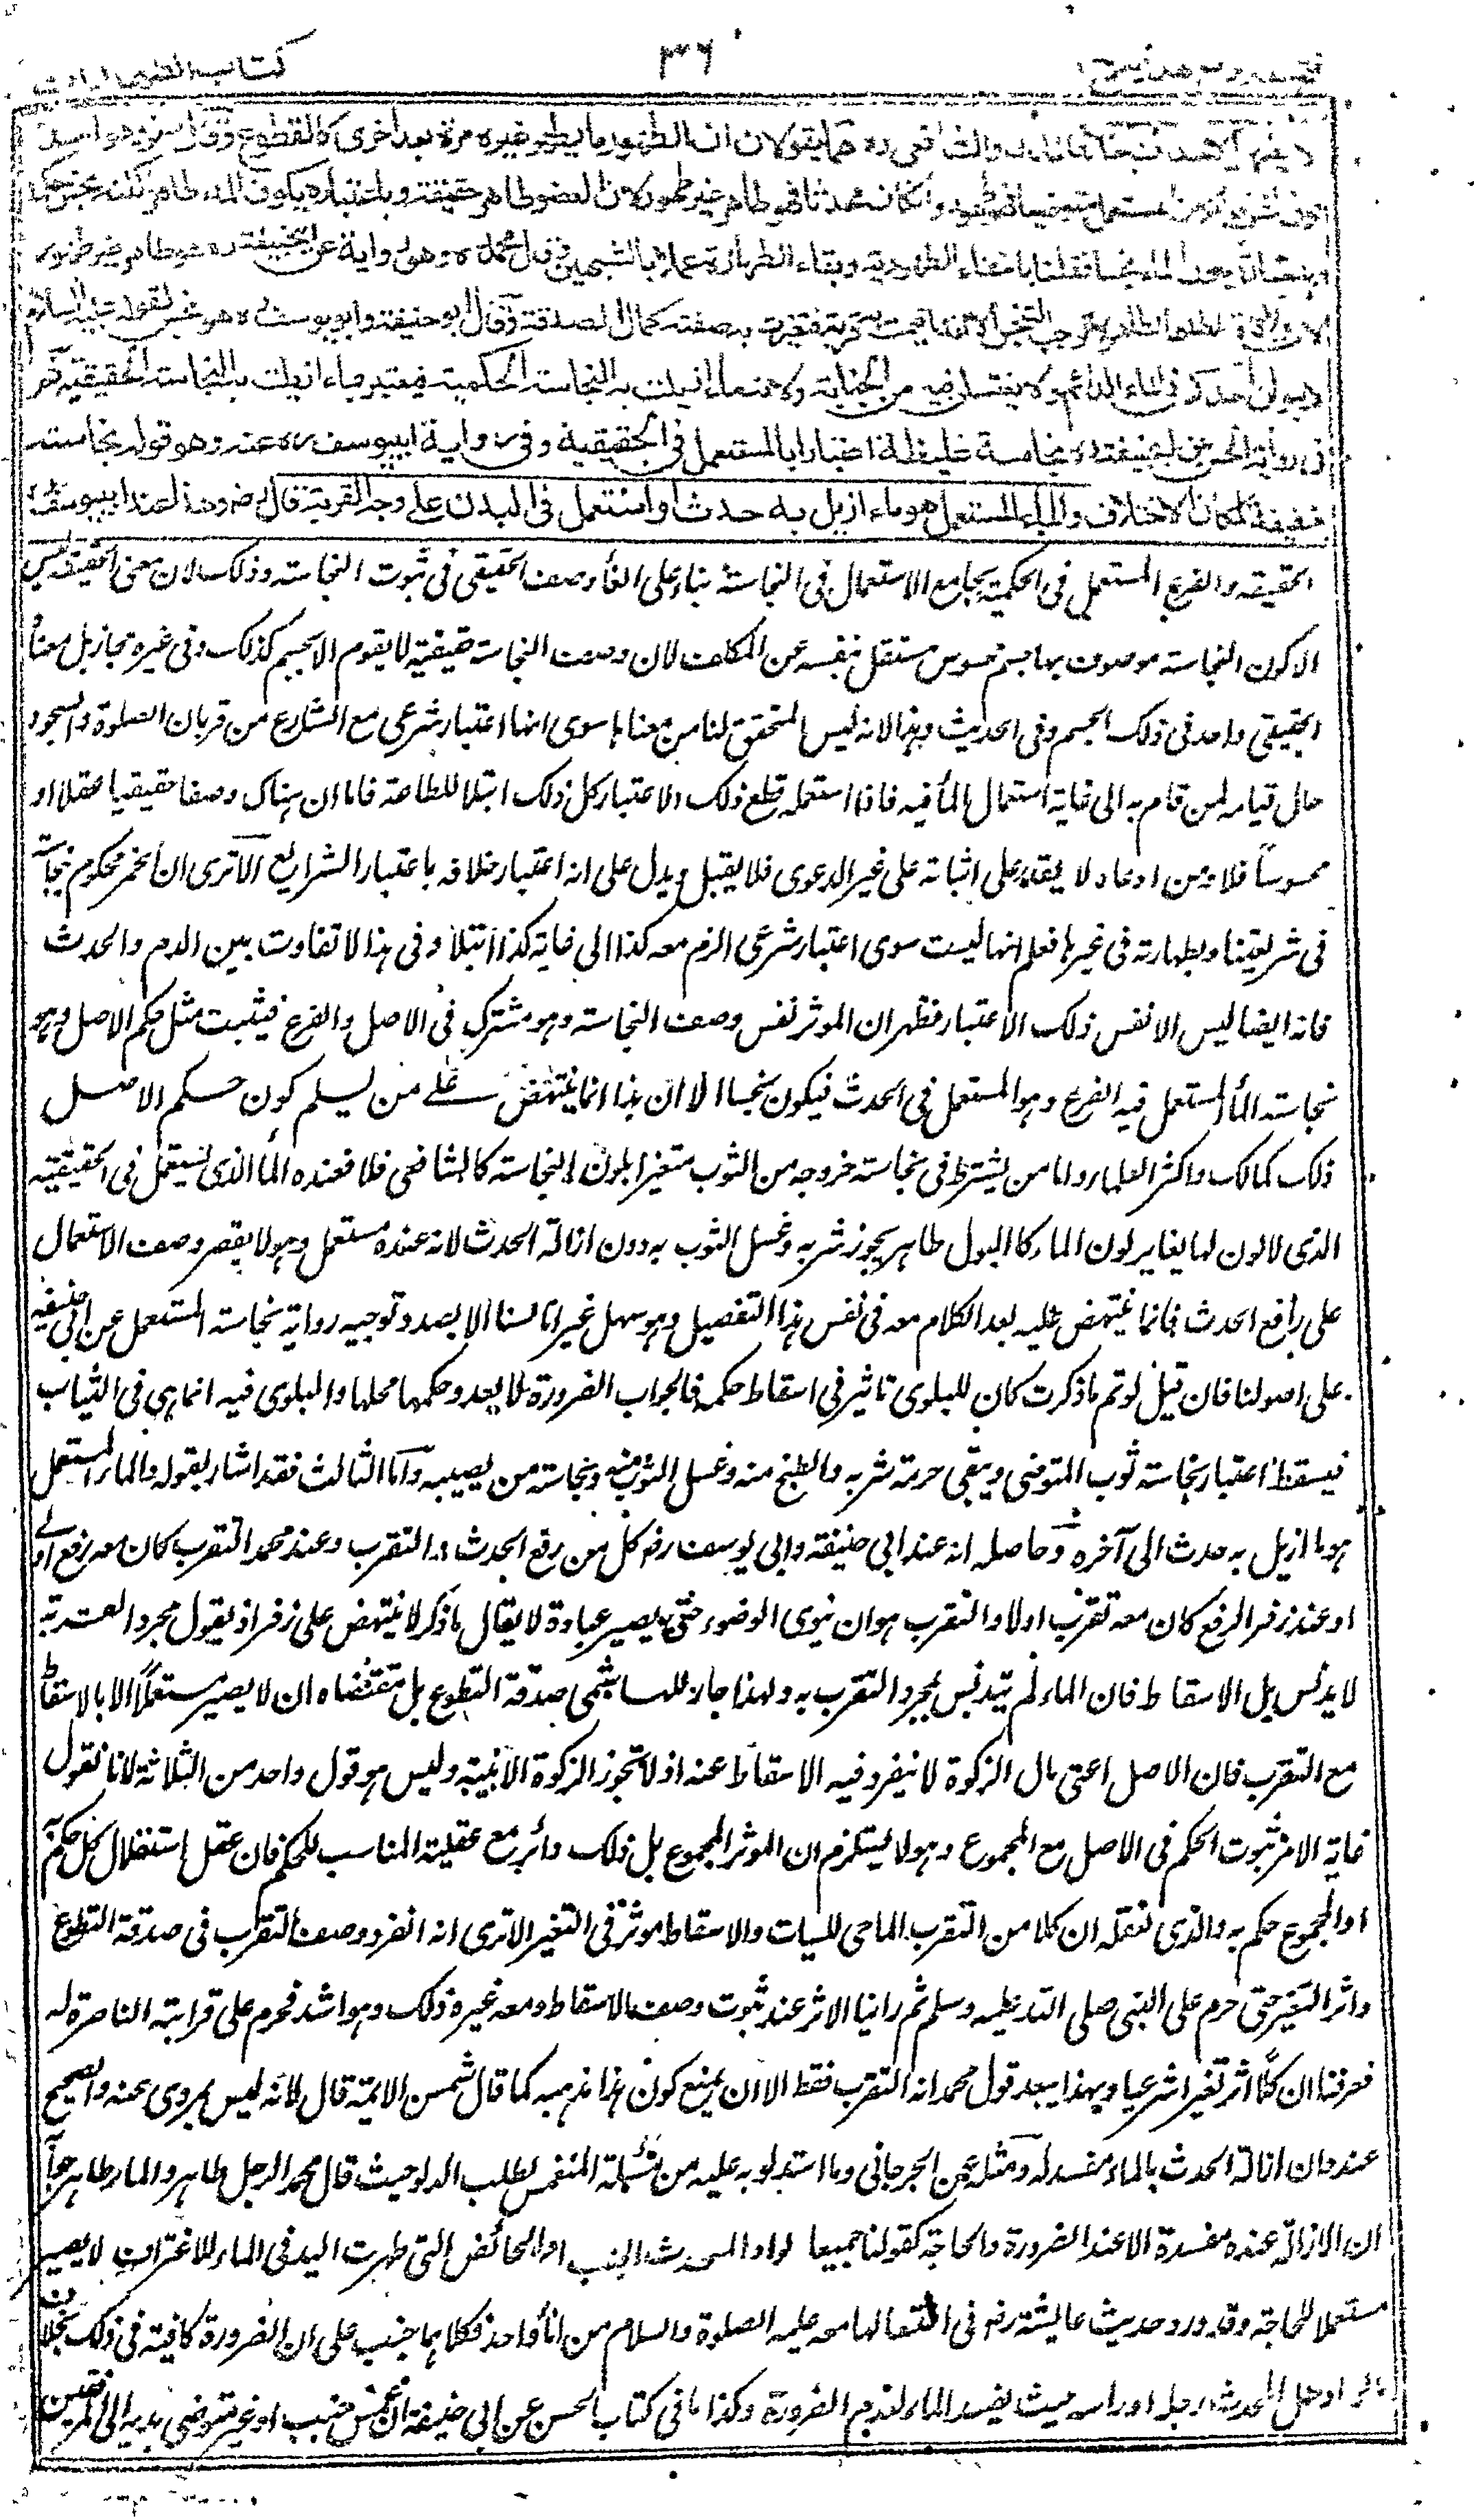 ٣٦
كتاب الطهارات
لا يطهر الاحداث خلافا لمالك والشافعي ره هما يقولان ان الطهور ما يطهر غيره مرة بعد اخرى كالقطوع وقال زفر وهو احد
قولي الشافعي ان كان المستعمل متوضيا فهو طهور وان كان محدثا فهو طاهر غير طهور لان العضو طاهر حقيقة وباعتباره يكون الماء طاهرا لكنه نجس حكما
وباعتباره يكون الماء نجسا فقلنا بانتفاء الطهورية وبقاء الطهارة عملا بالشبهين وقال محمد ره وهو رواية عن ابي حنيفة ره هو طاهر غير طهور
لان ملاقاة الطاهر الطاهر لا توجب التنجس الا انه اقيمت به قربة فتغيرت به صفته كمال الصدقة وقال ابو حنيفة وابو يوسف ره هو نجس لقوله عليه السلام
لا يبولن احدكم في الماء الدائم ولا يغتسلن فيه من الجنابة ولانه ماء ازيلت به النجاسة الحكمية فيعتبر بماء ازيلت به النجاسة الحقيقية ثم
في رواية الحسن عن ابي حنيفة ره نجاسة غليظة اعتبارا بالمستعمل في الحقيقية وفي رواية ابي يوسف ره عنه وهو قوله نجاسة
خفيفة لمكان الاختلاف والماء المستعمل هو ماء ازيل به حدث او استعمل في البدن على وجه القربة قال رض وهذا عند ابي يوسف
الحقيقية والفرع المستعمل في الحكمية بجامع الاستعمال في النجاسة بناء على الغاء وصف الحقيقي في ثبوت النجاسة وذلك لان معنى الحقيقة ليس
الا كون النجاسة موصوف بها جسم محسوس مستقل بنفسه عن المكلف لان وصف النجاسة حقيقية لا يقوم الا بجسم كذلك وفي غيره مجاز بل معناه
الحقيقي واحد في ذلك الجسم وفي الحديث وهذا لانه ليس المتحقق لنا من معناها سوى انها اعتبار شرعي منع الشارع من قربان الصلوة والسجود
حال قيامه لمن قام به الى غاية استعمال الماء فيه فاذا استعمله قطع ذلك الاعتبار كل ذلك ابتلاء للطاعة فاما ان هناك وصفا حقيقيا عقليا او
محسوسا فلا ومن ادعاه لا يقدر على اثباته على غير الدعوى فلا يقبل ويدل على انه اعتبار خلافه باعتبار الشرايع الا ترى ان الخمر محكوم بنجاسته
في شريعتنا وبطهارته في غيرها فعلم انها ليست سوى اعتبار شرعي الزم معه كذا الى غاية كذا ابتلاء وفي هذا لا تفاوت بين الدم والحدث
فانه ايضا ليس الا نفس ذلك الاعتبار فظهر ان الموثر نفس وصف النجاسة وهو مشترك في الاصل والفرع فيثبت مثل حكم الاصل وهو
نجاسة الماء المستعمل فيه الفرع وهو المستعمل في الحدث فيكون نجسا الا ان هذا انما ينتهض على من يسلم كون حكم الاصل
ذلك كمالك واكثر العلماء واما من يشترط في نجاسة خروجه من الثوب متغيرا بلون النجاسة كالشافعي فلا فعنده الماء الذي يستعمل في الحقيقية
الذي لا لون لها يغاير لون الماء كالبول طاهر يجوز شربه وغسل الثوب به دون ازالة الحدث لانه عنده مستعمل وهو لا يقصر وصف الاستعمال
على رافع الحدث فانما ينتهض عليه بعد الكلام معه في نفس هذا التفصيل وهو سهل غير انا لسنا الا بصدد توجيه رواية نجاسة المستعمل عن ابي حنيفة
على اصولنا فان قيل لو تم ما ذكرت كان للبلوى تاثير في اسقاط حكمه فالجواب الضرورة لا يعدو حكمها محلها والبلوى فيه انما هي في الثياب
فيسقط اعتبار نجاسة ثوب المتوضى ويبقى حرمة شربه والطبخ منه وغسل الثوب منه ونجاسة من يصيبه واما الثالث فقد اشار بقوله والماء المستعمل
هو ما ازيل به حدث الى آخره وحاصله انه عند ابي حنيفة وابي يوسف رض كل من رفع الحدث والتقرب وعند محمد التقرب كان معه رفع اولا
او عند زفر الرفع كان معه تقرب اولا والتقرب هو ان ينوى الوضوء حتى يصير عبادة لا يقال ما ذكر لا ينتهض على زفر اذ يقول مجرد القربة
لا يدنس بل الاسقاط فان الماء لم يتدنس بمجرد التقرب به ولهذا جاز للهاشمي صدقة التطوع بل مقتضاه ان لا يصير مستعملا الا بالاسقاط
مع التقرب فان الاصل اعني مال الزكوة لا ينفرد فيه الاسقاط عنه اذ لا تجوز الزكوة الا بنية وليس هو قول واحد من الثلاثة لانا نقول
غاية الامر ثبوت الحكم في الاصل مع المجموع وهو لا يستلزم ان الموثر المجموع بل ذلك دائر مع عقلية المناسب للحكم فان عقل استقلال كل حكم
او المجموع حكم به والذي نعقله ان كلا من التقرب الماحي للسيات والاسقاط موثر في التغير الا ترى انه انفرد وصف التقرب في صدقة التطوع
واثر التغير حتى حرم على النبي صلى الله عليه وسلم ثم راينا الاثر عند ثبوت وصف الاسقاط ومعه غيره ذلك وهو اشد فحرم على قرابته الناصرة له
فعرفنا ان كلا اثر تغيرا شرعيا وبهذا يبعد قول محمد انه التقرب فقط الا ان يمنع كون هذا مذهبه كما قال شمس الائمة قال لانه ليس بمروى عنه والصحيح
عنده ان ازالة الحدث بالماء مفسد له ومثله عن الجرجاني وما استدلوا به عليه من مسئلة المنغمس لطلب الدلو حيث قال محمد الرجل طاهر والماء طاهر جوابه
ان الازالة عنده مفسدة الا عند الضرورة والحاجة كقولنا جميعا لو ادخل المحدث او الجنب او الحائض التي طهرت اليد في الماء للاغتراف لا يصير
مستعملا للحاجة وقد ورد حديث عايشة رض في اغتسالها معه عليه الصلوة والسلام من اناء واحد فكلاهما جنب على ان الضرورة كافية في ذلك بخلاف
ما لو ادخل المحدث رجله او راسه حيث يفسد الماء لعدم الضرورة وكذا ما في كتاب الحسن عن ابي حنيفة ان غمس جنب او غير متوضى يديه الى المرفقين